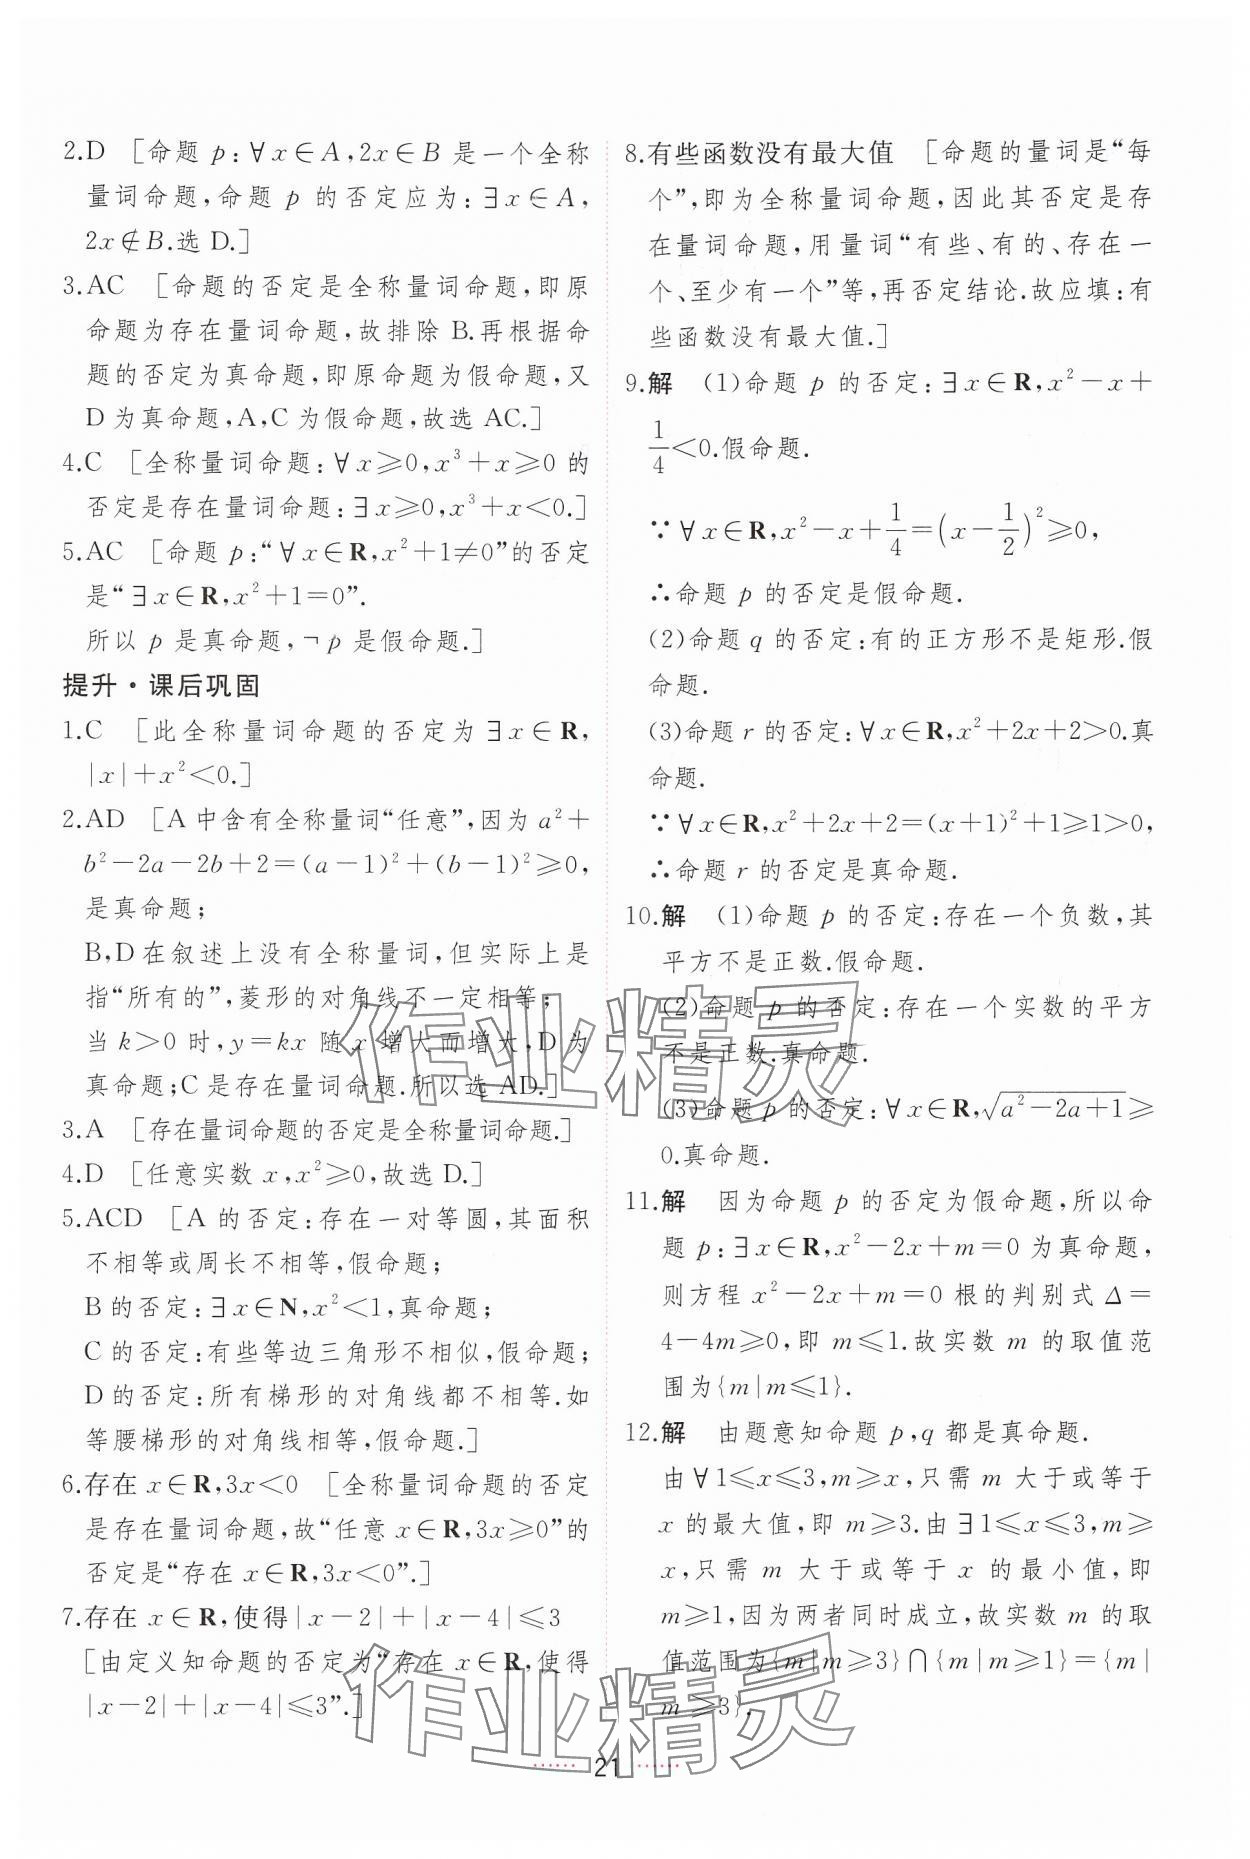 2.D [命题 p:∀x∈A,2x∈B 是一个全称
量词命题,命题 p 的否定应为:∃x∈A,
2x∉B.选 D.]
3.AC [命题的否定是全称量词命题,即原
命题为存在量词命题,故排除 B.再根据命
题的否定为真命题,即原命题为假命题,又
D 为真命题,A,C 为假命题,故选 AC.]
4.C [全称量词命题:∀x≥0,x³+x≥0 的
否定是存在量词命题:∃x≥0,x³+x<0.]
5.AC [命题 p:“∀x∈R,x²+1≠0”的否定
是“∃x∈R,x²+1=0”.
所以 p 是真命题,¬p 是假命题.]
提升·课后巩固
1.C [此全称量词命题的否定为∃x∈R,
|x|+x²<0.]
2.AD [A 中含有全称量词“任意”,因为 a²+
b²-2a-2b+2=(a-1)²+(b-1)²≥0,
是真命题;
B,D 在叙述上没有全称量词,但实际上是
指“所有的”,菱形的对角线不一定相等;
当 k>0 时,y=kx 随 x 增大而增大,D 为
真命题;C 是存在量词命题.所以选 AD.]
3.A [存在量词命题的否定是全称量词命题.]
4.D [任意实数 x,x²≥0,故选 D.]
5.ACD [A 的否定:存在一对等圆,其面积
不相等或周长不相等,假命题;
B 的否定:∃x∈N,x²<1,真命题;
C 的否定:有些等边三角形不相似,假命题;
D 的否定:所有梯形的对角线都不相等.如
等腰梯形的对角线相等,假命题.]
6.存在 x∈R,3x<0 [全称量词命题的否定
是存在量词命题,故“任意 x∈R,3x≥0”的
否定是“存在 x∈R,3x<0”.]
7.存在 x∈R,使得|x-2|+|x-4|≤3
[由定义知命题的否定为“存在 x∈R,使得
|x-2|+|x-4|≤3”.]
8.有些函数没有最大值 [命题的量词是“每
个”,即为全称量词命题,因此其否定是存
在量词命题,用量词“有些、有的、存在一
个、至少有一个”等,再否定结论.故应填:有
些函数没有最大值.]
9.解 (1)命题 p 的否定:∃x∈R,x²-x+
1/4<0.假命题.
∵∀x∈R,x²-x+1/4=(x-1/2)²≥0,
∴命题 p 的否定是假命题.
(2)命题 q 的否定:有的正方形不是矩形.假
命题.
(3)命题 r 的否定:∀x∈R,x²+2x+2>0.真
命题.
∵∀x∈R,x²+2x+2=(x+1)²+1≥1>0,
∴命题 r 的否定是真命题.
10.解 (1)命题 p 的否定:存在一个负数,其
平方不是正数.假命题.
(2)命题 p 的否定:存在一个实数的平方
不是正数.真命题.
(3)命题 p 的否定:∀x∈R,√(a²-2a+1)≥
0.真命题.
11.解 因为命题 p 的否定为假命题,所以命
题 p:∃x∈R,x²-2x+m=0 为真命题,
则方程 x²-2x+m=0 根的判别式 Δ=
4-4m≥0,即 m≤1.故实数 m 的取值范
围为{m|m≤1}.
12.解 由题意知命题 p,q 都是真命题.
由∀1≤x≤3,m≥x,只需 m 大于或等于
x 的最大值,即 m≥3.由∃1≤x≤3,m≥
x,只需 m 大于或等于 x 的最小值,即
m≥1,因为两者同时成立,故实数 m 的取
值范围为{m|m≥3}∩{m|m≥1}={m|
m≥3}.
作业精灵
作业精灵
21